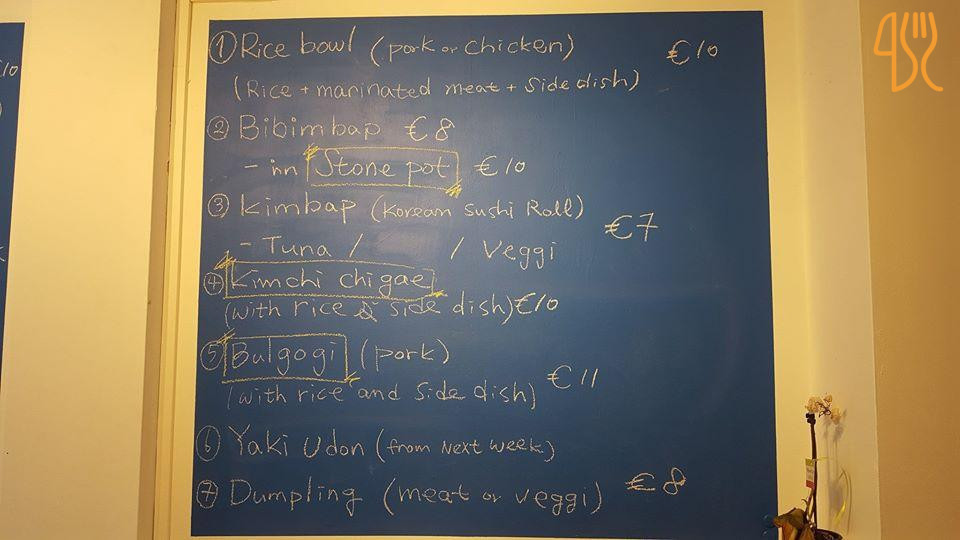 ① Rice bowl (pork or chicken) €10
(Rice + marinated meat + side dish)
② Bibimbap €8
- in Stone pot €10
③ Kimbap (Korean sushi Roll) €7
- Tuna / / Veggi
④ Kimchi chigae
(with rice & side dish) €10
⑤ Bulgogi (pork)
(with rice and side dish) €11
⑥ Yaki Udon (from Next week)
⑦ Dumpling (meat or veggi) €8